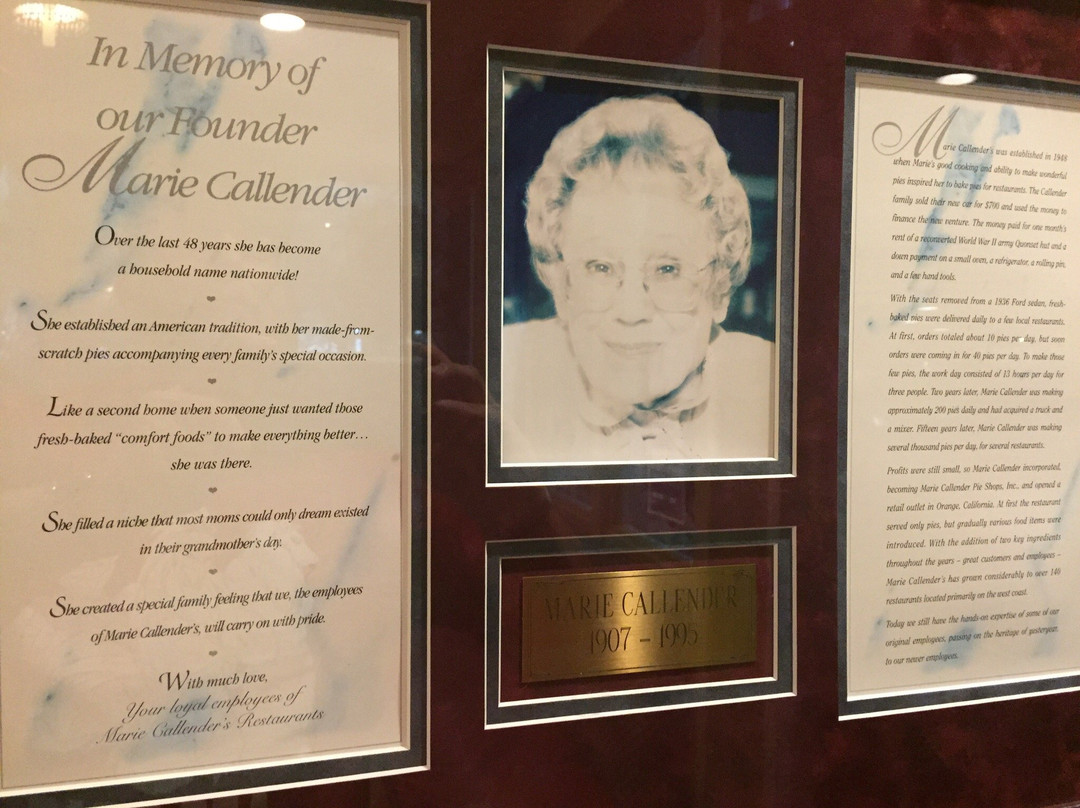 In Memory of
our Founder
Marie Callender
Over the last 48 years she has become
a household name nationwide!
She established an American tradition, with her made-from-
scratch pies accompanying every family's special occasion.
Like a second home when someone just wanted those
fresh-baked “comfort foods” to make everything better…
she was there.
She filled a niche that most moms could only dream existed
in their grandmother's day.
She created a special family feeling that we, the employees
of Marie Callender's, will carry on with pride.
With much love,
Your loyal employees of
Marie Callender's Restaurants
MARIE CALLENDER
1907 – 1995
Marie Callender's was established in 1948
when Marie's good cooking and ability to make wonderful
pies inspired her to bake pies for restaurants. The Callender
family sold their new car for $700 and used the money to
finance the new venture. The money paid for one month's
rent of a reconverted World War II army Quonset hut and a
down payment on a small oven, a refrigerator, a rolling pin,
and a few hand tools.
With the seats removed from a 1936 Ford sedan, fresh-
baked pies were delivered daily to a few local restaurants.
At first, orders totaled about 10 pies per day, but soon
orders were coming in for 40 pies per day. To make those
few pies, the work day consisted of 13 hours per day for
three people. Two years later, Marie Callender was making
approximately 200 pies daily and had acquired a truck and
a mixer. Fifteen years later, Marie Callender was making
several thousand pies per day, for several restaurants.
Profits were still small, so Marie Callender incorporated,
becoming Marie Callender Pie Shops, Inc., and opened a
retail outlet in Orange, California. At first the restaurant
served only pies, but gradually various food items were
introduced. With the addition of two key ingredients
throughout the years – great customers and employees –
Marie Callender's has grown considerably to over 140
restaurants located primarily on the west coast.
Today we still have the hands-on expertise of some of our
original employees, passing on the heritage of yesteryear,
to our newer employees.